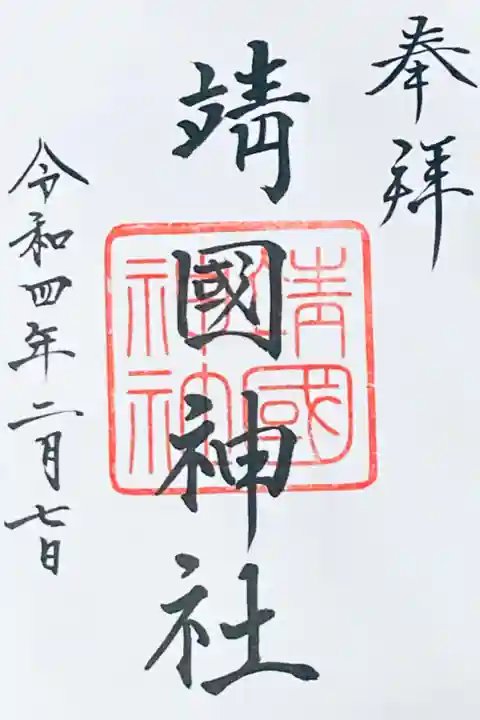 奉拜
靖國神社
靖國神社
令和四年二月七日